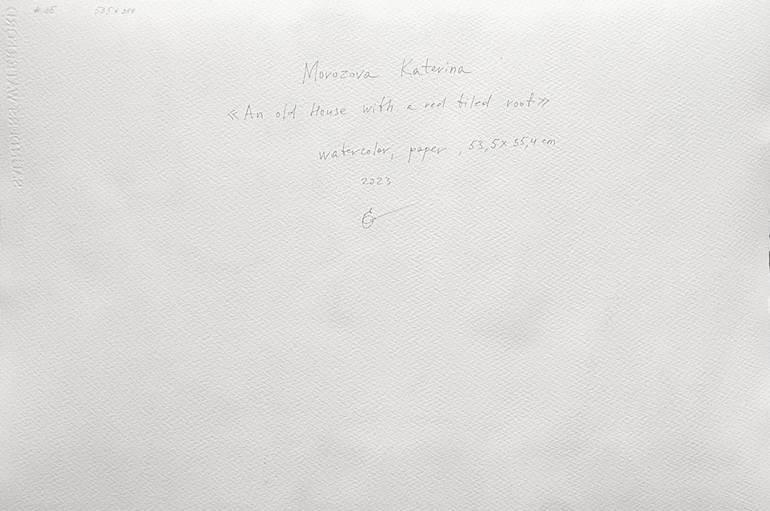 Morozova Katerina
«An old House with a red tiled roof»
watercolor, paper, 53,5 x 35,4 cm
2023